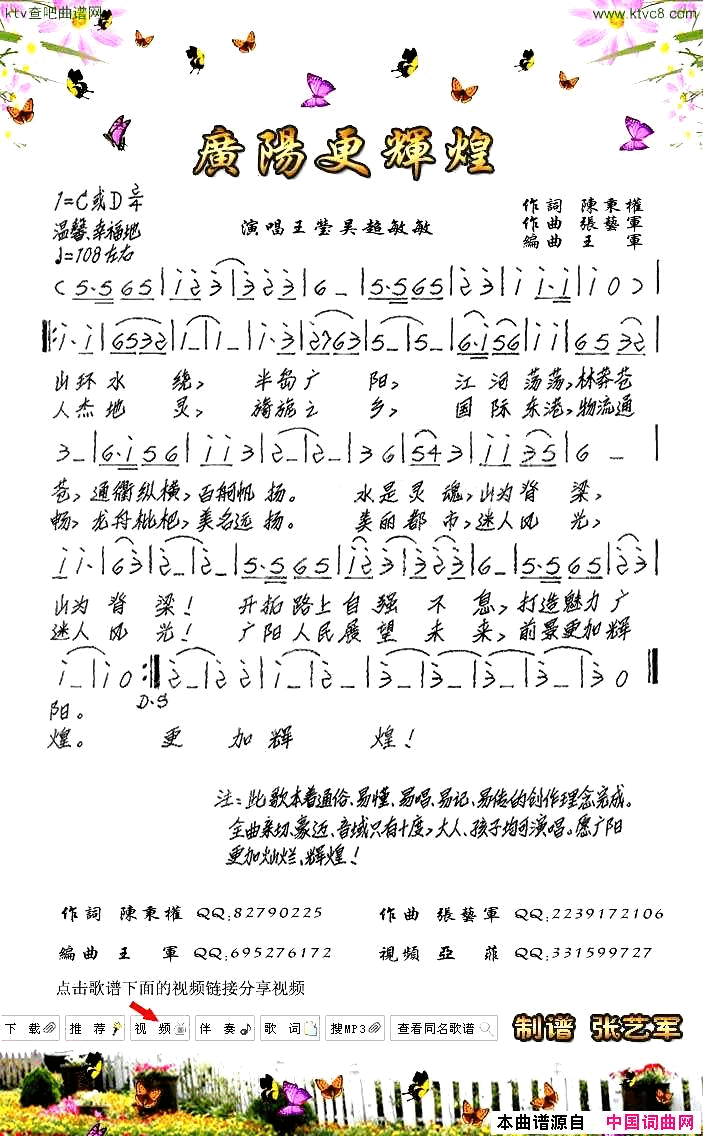 ktv查吧曲谱网
www.ktvc8.com
廣陽更輝煌
1=C或D 2/4
温馨、幸福地
♩=108左右
演唱 王瑩 吴超 敏敏
作詞 陳秉權
作曲 張藝軍
編曲 王 軍
(5·5 6 5|i 2 3|3 2 2 3|6 -|5·5 6 5|2 2 3|i i·i|i 0)
山环水 绕, 半岛广 阳, 江河荡荡,林莽苍
人杰地 灵, 旖旎之 乡, 国际东港,物流通
苍,通衢纵横,百舸帆扬。 水是灵魂,山为脊梁,
畅,龙舟枇杷,美名远扬。 美丽都市,迷人风光,
山为脊梁! 开拓路上自强不息,打造魅力广
迷人风光! 广阳人民展望未来,前景更加辉
D.S
阳。
煌。 更 加辉 煌!
注:此歌本着通俗、易懂、易唱、易记、易传的创作理念完成。
全曲亲切、豪迈、音域只有十度,大人、孩子均可演唱。愿广阳
更加灿烂、辉煌!
作詞 陳秉權 QQ:82790225 作曲 張藝軍 QQ:2239172106
編曲 王 軍 QQ:695276172 視頻 亞 菲 QQ:331599727
点击歌谱下面的视频链接分享视频
下 载 推 荐 视 频 伴 奏 歌 词 搜MP3 查看同名歌谱 制谱 张艺军
本曲谱源自 中国词曲网